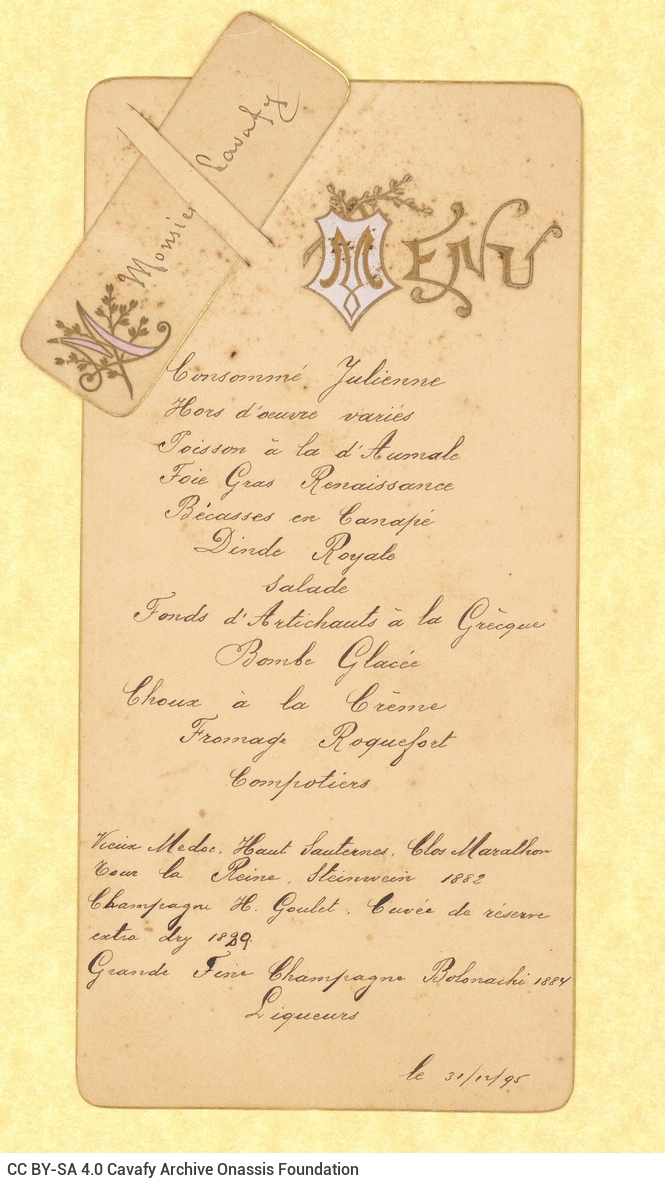 Monsie Cavafy
MENU
Consommé Julienne
Hors d'œuvre variés
Poisson à la d'Aumale
Foie Gras Renaissance
Bécasses en Canapé
Dinde Royale
Salade
Fonds d'Artichauts à la Grècque
Bombe Glacée
Choux à la Crème
Fromage Roquefort
Compotiers
Vieux Medoc, Haut Sauternes, Clos Marathon
Tour la Reine, Steinwein 1882
Champagne H. Goulet, Cuvée de réserve
extra dry 1889.
Grande Fine Champagne Bolonachi 1884
Liqueurs
le 31/12/95
CC BY-SA 4.0 Cavafy Archive Onassis Foundation